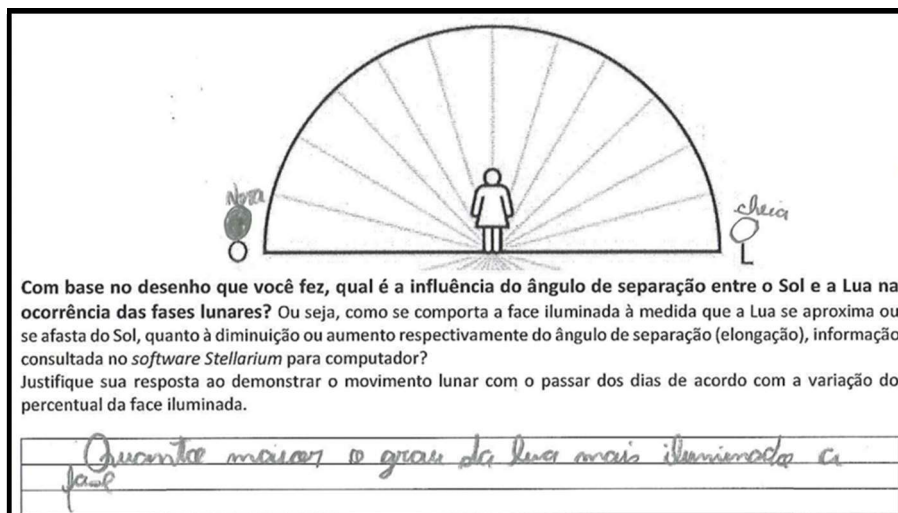 Nova
cheia
O
L
Com base no desenho que você fez, qual é a influência do ângulo de separação entre o Sol e a Lua na
ocorrência das fases lunares? Ou seja, como se comporta a face iluminada à medida que a Lua se aproxima ou
se afasta do Sol, quanto à diminuição ou aumento respectivamente do ângulo de separação (elongação), informação
consultada no software Stellarium para computador?
Justifique sua resposta ao demonstrar o movimento lunar com o passar dos dias de acordo com a variação do
percentual da face iluminada.
Quanto maior o grau da lua mais iluminada a
fase